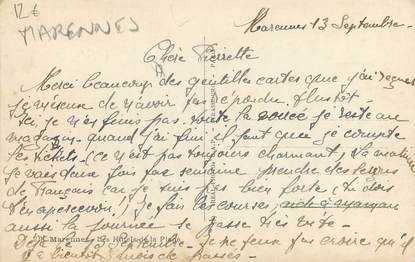 126
MARENNES
Marennes 13 Septembre
Chère Pierrette
Merci beaucoup des gentilles cartes que j'ai reçues
je m'excuse de n'avoir pas répondu plustôt -
Ici, je n'ai finis pas. toute la je reste au
magasin quand j'ai fini il faut que je compte
les tickets (ce n'est pas toujours charmant, la matinée
je vais deux fois par semaine prendre des leçons
de français car je suis pas bien forte (tu dois
t'en apercevoir)! je fais les courses, aide à maman
aussi la journée se passe très vite -
Déjà 13 Septembre. Je ne peux pas croire qu'il
y a bientôt mois de passés -
Marennes Les Hôtels de la Plage